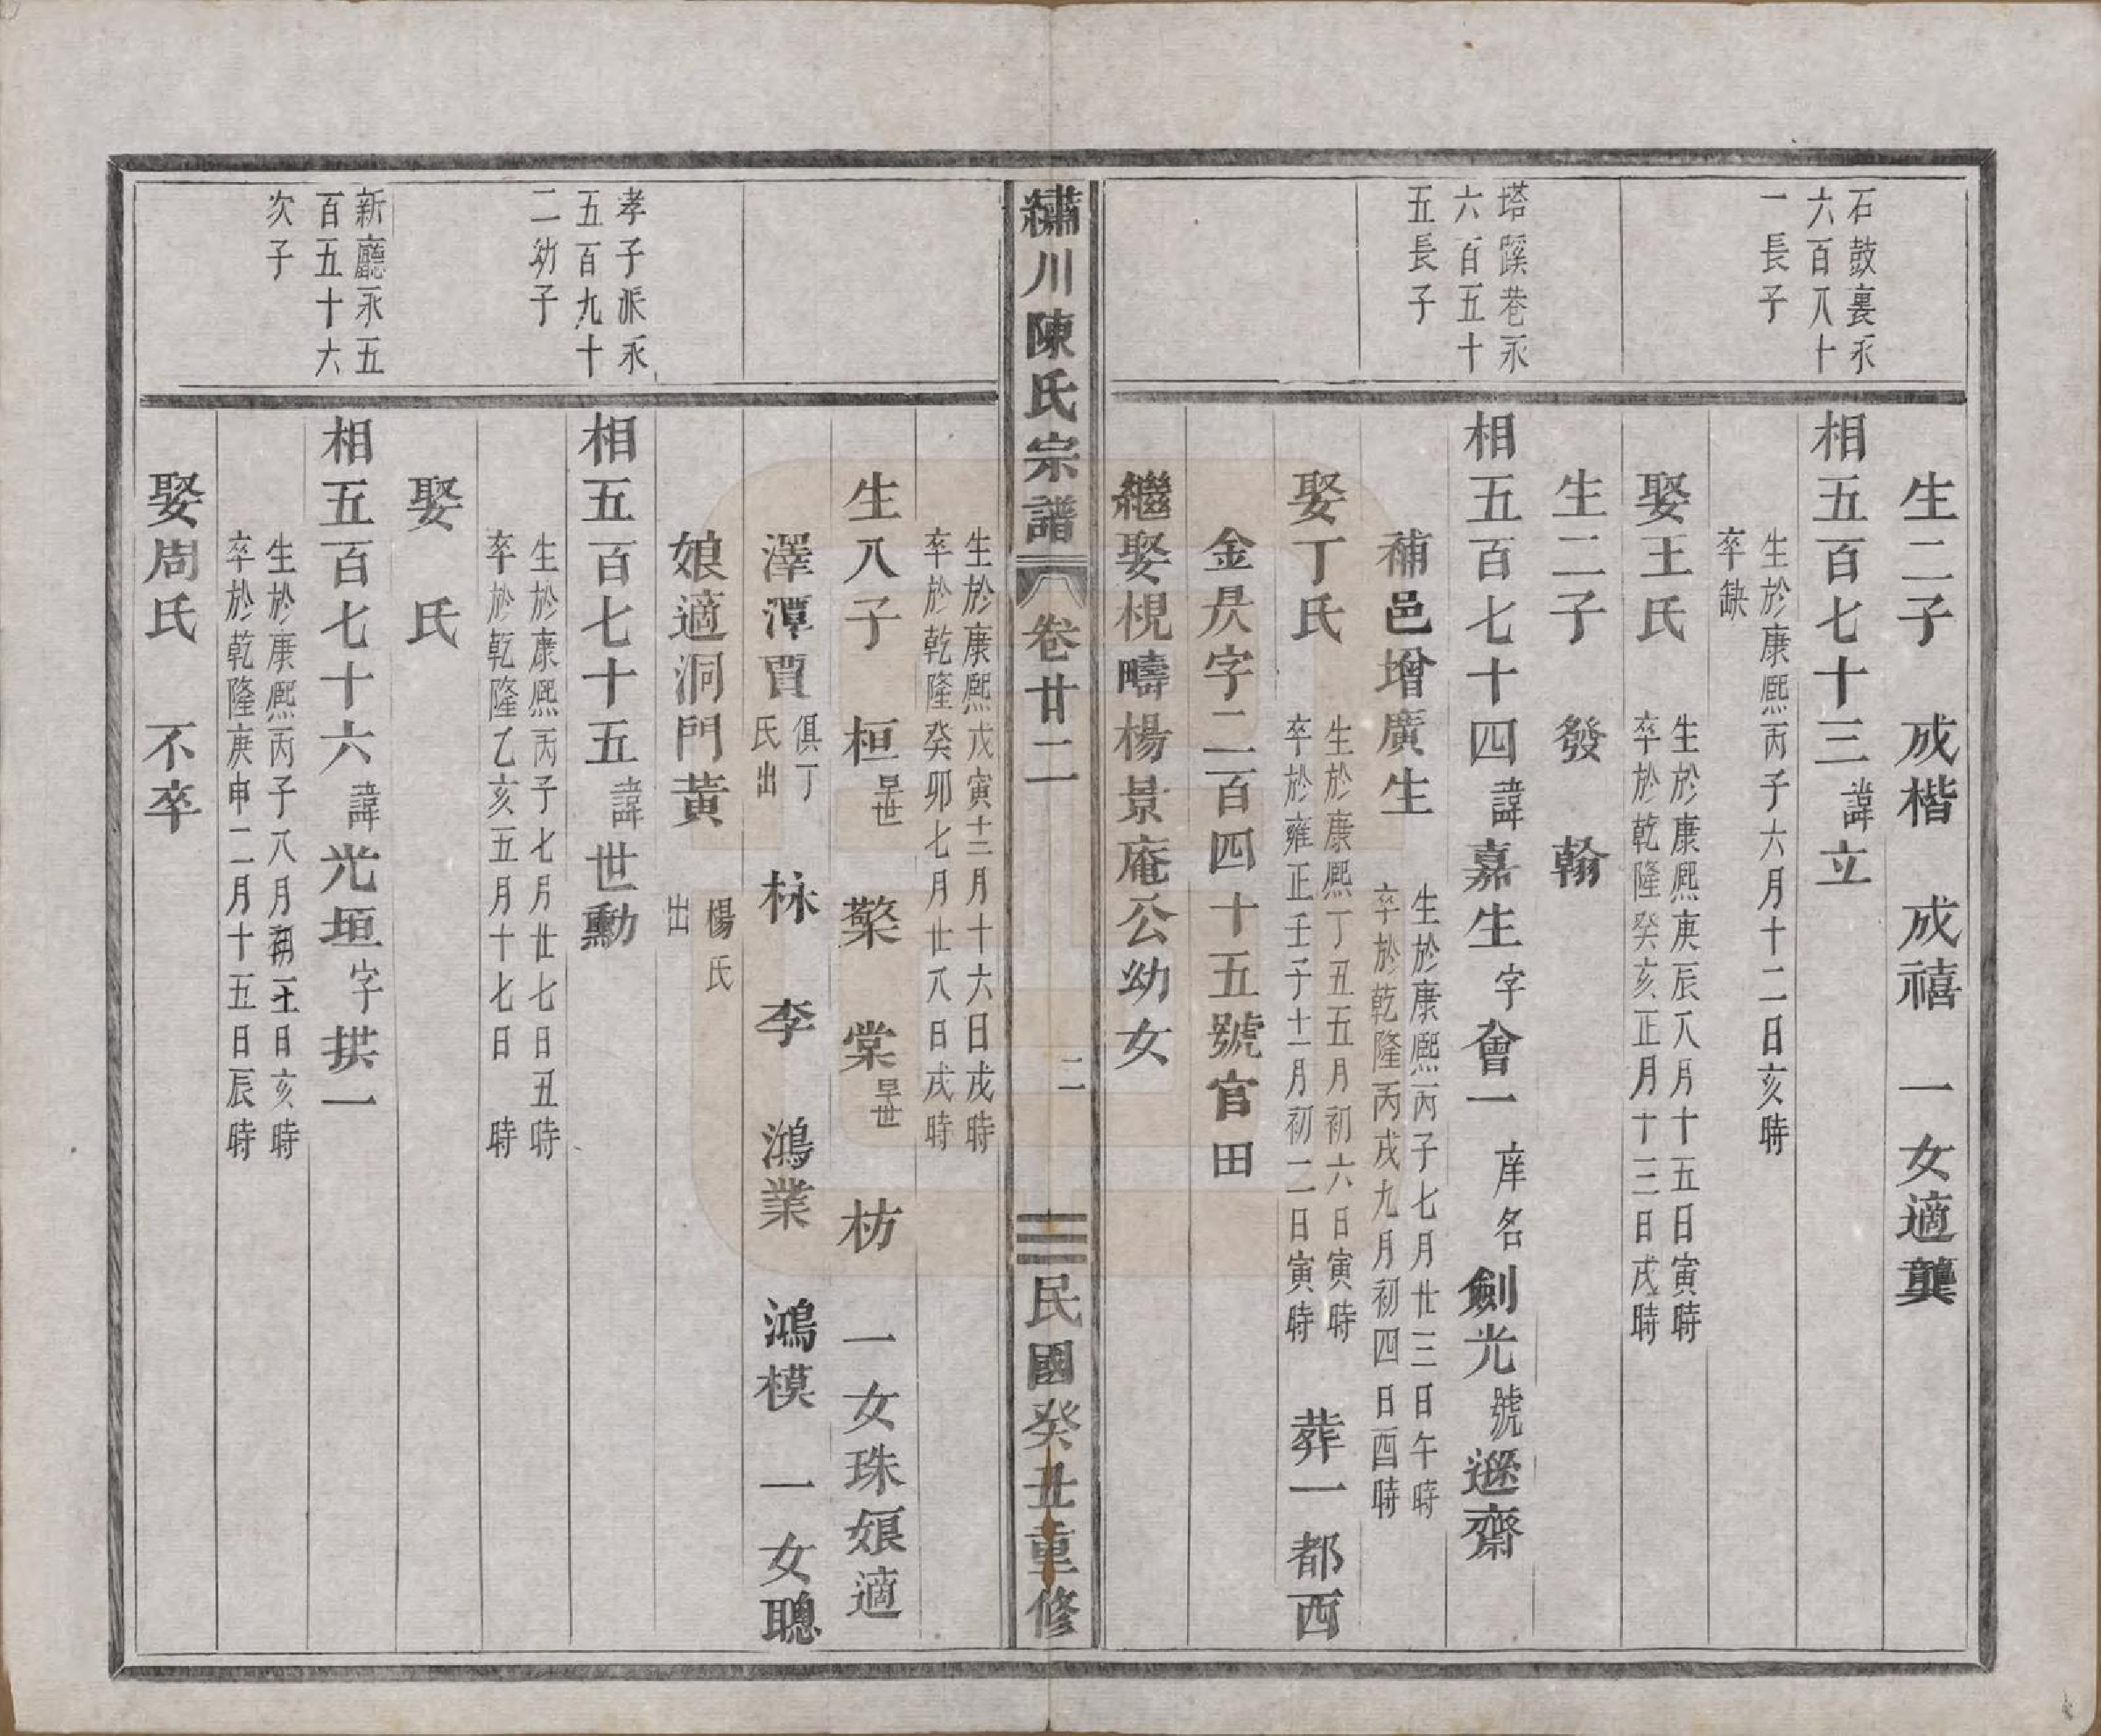 石鼓裏永
六百八十
一長子
塔蹊巷永
六百五十
五長子
生二子 成楷 成禧 一女適龔
相五百七十三諱立
生於康熙丙子六月十二日亥時
卒缺
娶王氏
生於康熙庚辰八月十五日寅時
卒於乾隆癸亥正月十三日戌時
生二子 發 翰
相五百七十四諱嘉生字會一庠名劍光號遯齋
補邑增廣生
生於康熙丙子七月廿三日午時
卒於乾隆丙戌九月初四日酉時
娶丁氏
生於康熙丁丑五月初六日寅時
卒於雍正壬子十一月初二日寅時
葬一都西
金昃字二百四十五號官田
繼娶梘疇楊景庵公幼女
繡川陳氏宗譜 卷廿二 二 民國癸丑重修
孝子派永
五百九十
二幼子
新廳永五
百五十六
次子
生於康熙戊寅十二月十六日戌時
卒於乾隆癸卯七月廿八日戌時
生八子 桓早世 檠 棠早世 枋 一女珠娘適
澤潭賈
俱丁
氏出
栐 李 鴻業 鴻模 一女聰
娘適洞門黃
楊氏
出
相五百七十五諱世勳
生於康熙丙子七月廿七日丑時
卒於乾隆乙亥五月十七日 時
娶 氏
相五百七十六諱光垣字拱一
生於康熙丙子八月初十一日亥時
卒於乾隆庚申二月十五日辰時
娶周氏 不卒